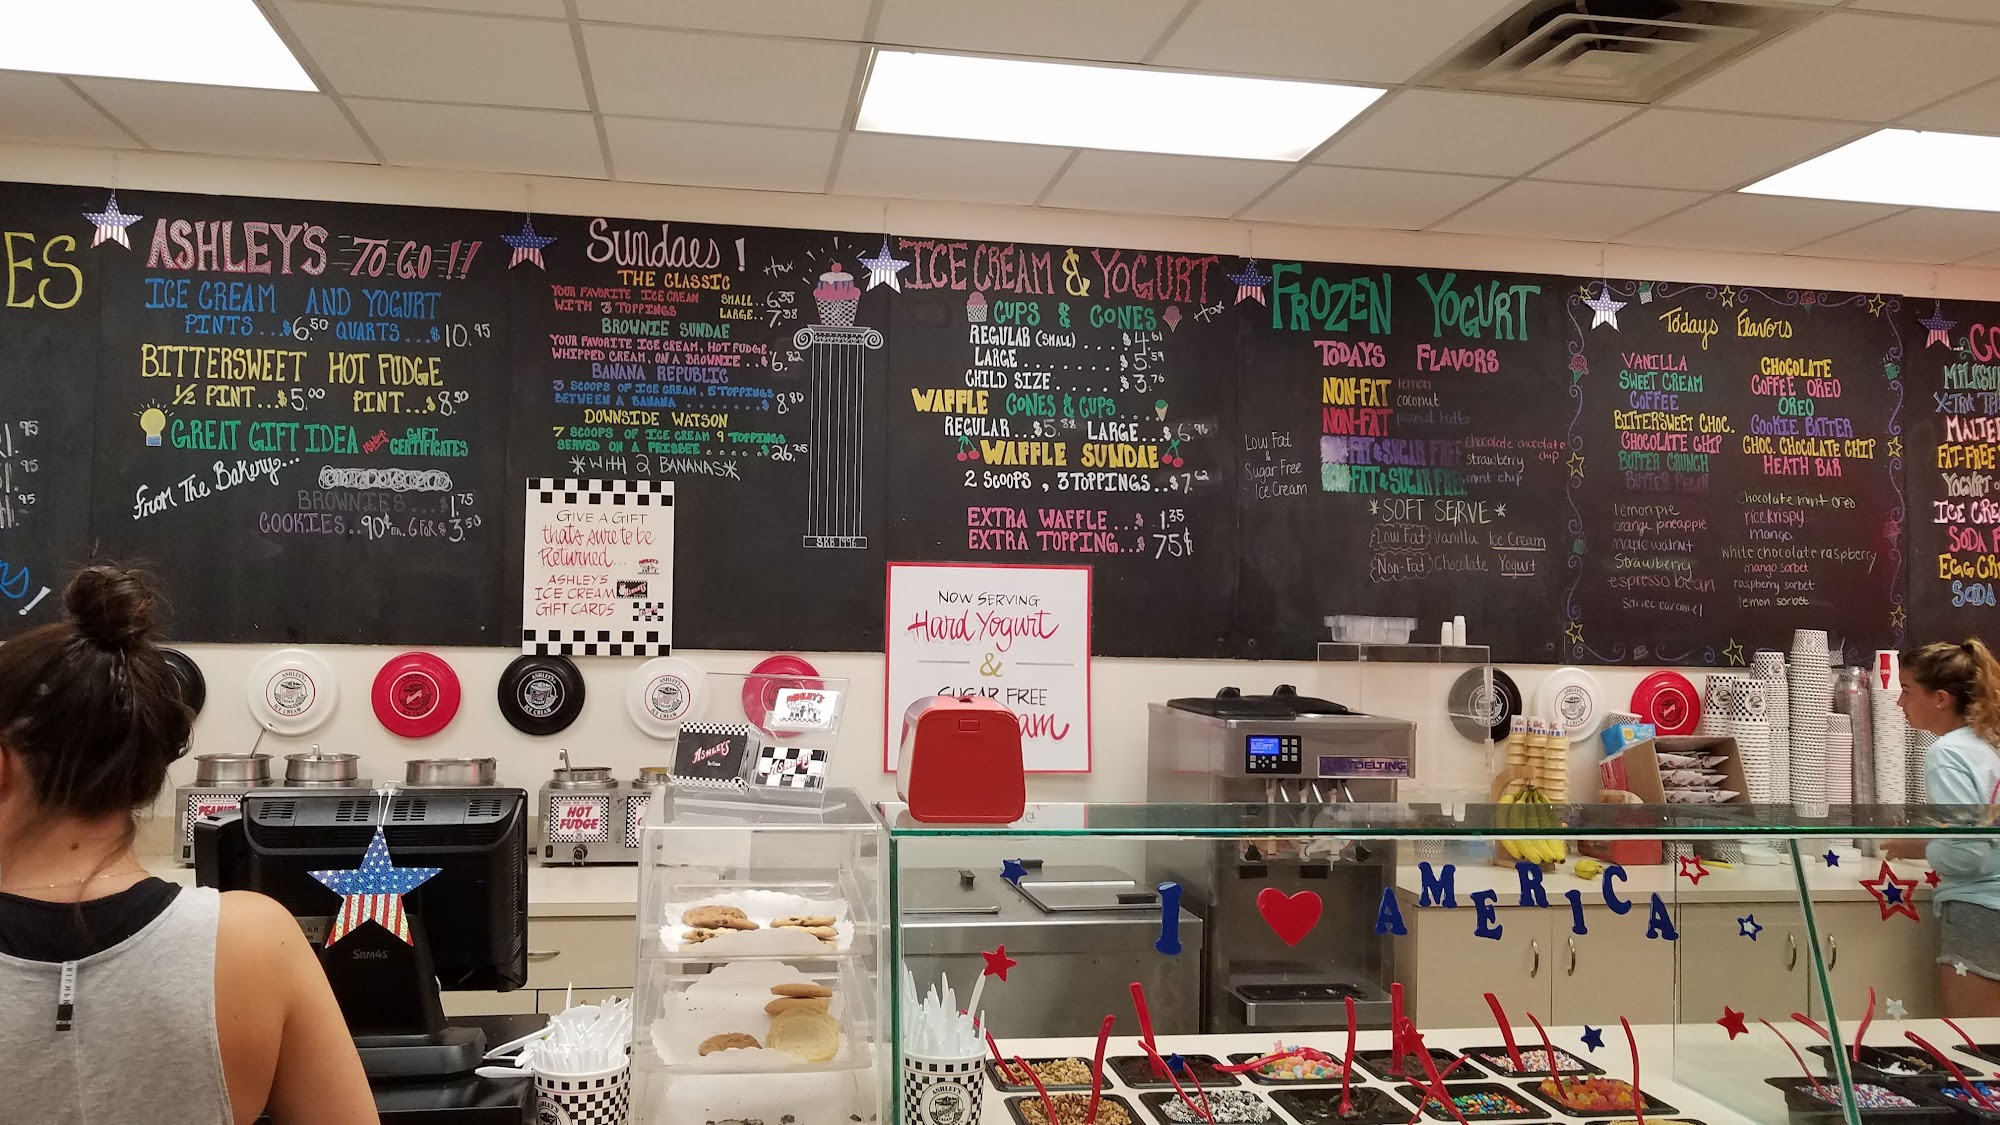 ES
.95
.95
.95
ASHLEY'S TO GO!!
ICE CREAM AND YOGURT
PINTS...$6.50 QUARTS...$10.95
BITTERSWEET HOT FUDGE
1/2 PINT...$5.00 PINT...$8.50
GREAT GIFT IDEA Ashley's GIFT CERTIFICATES
From The Bakery...
BROWNIES...$1.75
COOKIES..90¢ EA. 6 FOR $3.50
Sundaes!
+tax
THE CLASSIC
YOUR FAVORITE ICE CREAM
WITH 3 TOPPINGS
SMALL..6.35
LARGE..7.38
BROWNIE SUNDAE
YOUR FAVORITE ICE CREAM, HOT FUDGE,
WHIPPED CREAM, ON A BROWNIE..$6.82
BANANA REPUBLIC
3 SCOOPS OF ICE CREAM, 5 TOPPINGS
BETWEEN A BANANA.......$8.80
DOWNSIDE WATSON
7 SCOOPS OF ICE CREAM 9 TOPPINGS
SERVED ON A FRISBEE.....$26.25
*WITH 2 BANANAS*
SKB 1996
ICE CREAM & YOGURT
CUPS & CONES +tax
REGULAR (SMALL)....$4.61
LARGE.......$5.59
CHILD SIZE....$3.76
WAFFLE CONES & CUPS....
REGULAR...$5.88 LARGE...$6.96
WAFFLE SUNDAE
2 SCOOPS, 3 TOPPINGS..$7.62
EXTRA WAFFLE...$1.35
EXTRA TOPPING...75¢
FROZEN YOGURT
TODAYS FLAVORS
NON-FAT lemon
coconut
NON-FAT peanut butter
FAT & SUGAR FREE chocolate chocolate chip
strawberry
FAT & SUGAR FREE mint chip
Low Fat
&
Sugar Free
- Ice Cream
*SOFT SERVE*
(Low Fat) Vanilla Ice Cream
(Non-Fat) Chocolate Yogurt
Todays Flavors
VANILLA
SWEET CREAM
COFFEE
BITTERSWEET CHOC.
CHOCOLATE CHIP
BUTTER CRUNCH
BUTTER PECAN
lemon pie
orange pineapple
maple walnut
Strawberry
espresso bean
salted caramel
CHOCOLATE
COFFEE OREO
OREO
COOKIE BATTER
CHOC. CHOCOLATE CHIP
HEATH BAR
chocolate mint oreo
rice krispy
mango
white chocolate raspberry
mango sorbet
raspberry sorbet
lemon sorbet
CO
MILKSH
X-TRA TH
MALTE
FAT-FREE
YOGURT
ICE CREA
SODA F
EGG CR
SODA
GIVE A GIFT
that's sure to be
Returned...
ASHLEY'S
ICE CREAM
GIFT CARDS
NOW SERVING
Hard Yogurt
&
SUGAR FREE
am
ASHLEY'S
ICE CREAM
HOT
FUDGE
ASHLEY'S
STOELTING
SAM4S
I AMERICA